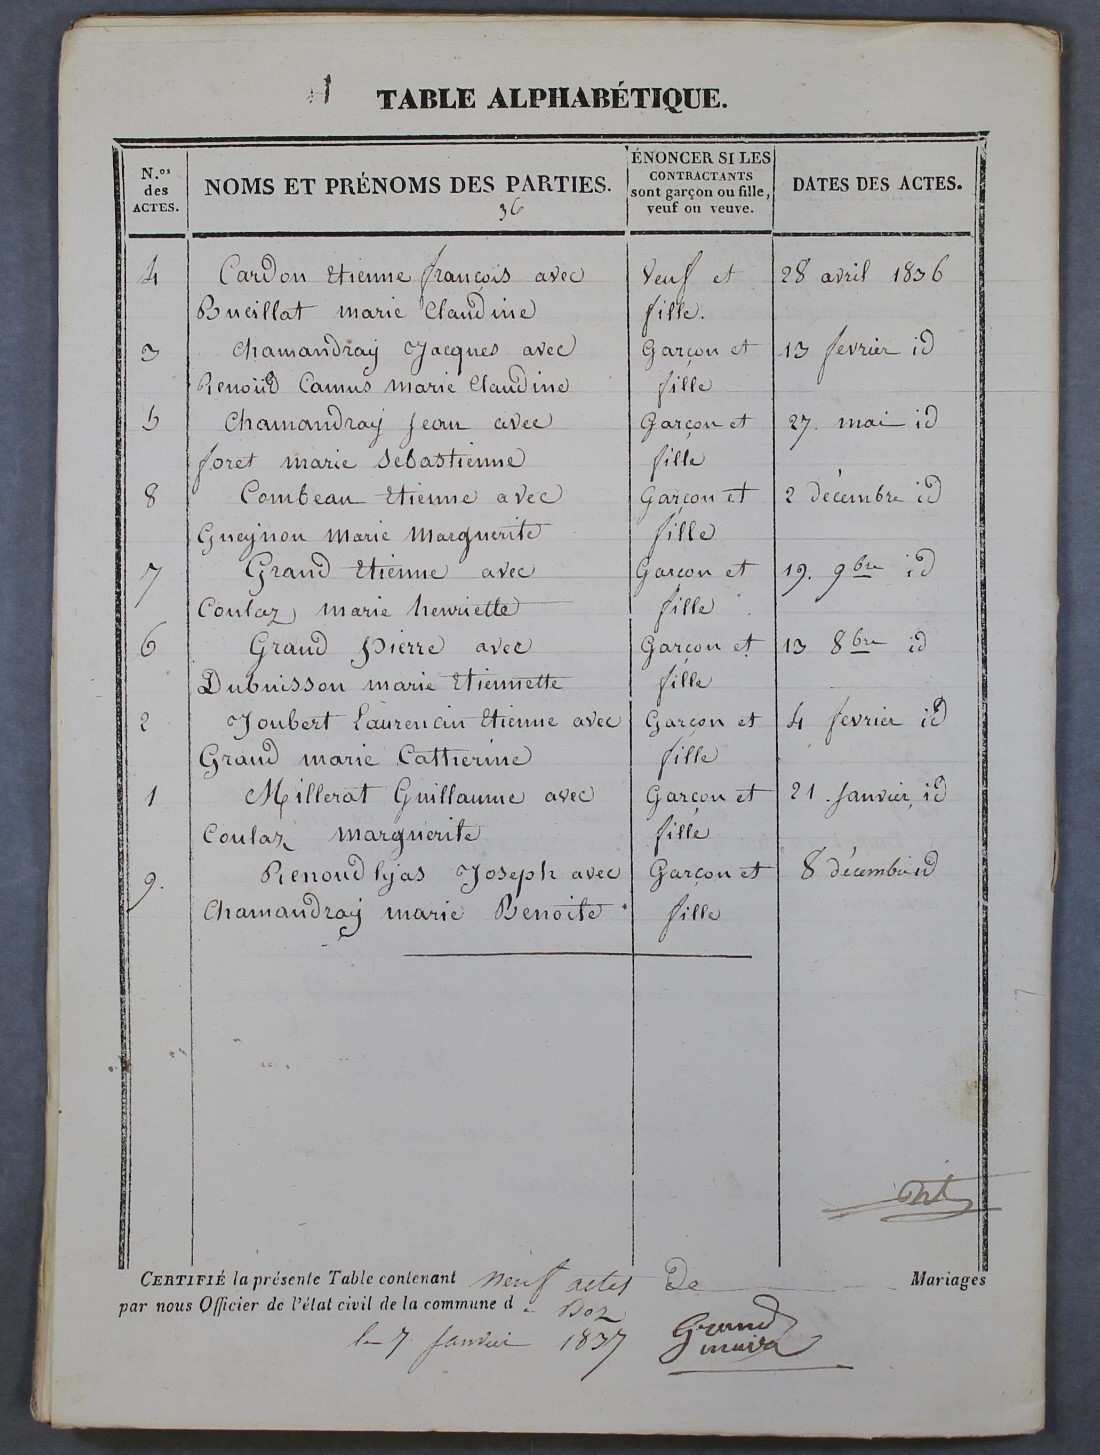 1 TABLE ALPHABÉTIQUE.
N.os des ACTES.
NOMS ET PRÉNOMS DES PARTIES.
36
ÉNONCER SI LES CONTRACTANTS sont garçon ou fille, veuf ou veuve.
DATES DES ACTES.
4 Cardon Etienne françois avec Veuf et 28 avril 1836
Bueillat marie Claudine fille.
3 Chamandray Jacques avec Garçon et 13 fevrier id
Renoüd Camus marie Claudine fille
5 Chamandray Jean avec Garçon et 27. mai id
foret marie Sebastienne fille
8 Combeau Etienne avec Garçon et 2 décembre id
Gueynon marie marguerite fille
7 Grand Etienne avec Garçon et 19. 9bre id
Coulaz marie henriette fille
6 Grand pierre avec Garçon et 13 8bre id
Dubuisson marie Etiennette fille
2 Joubert Laurencin Etienne avec Garçon et 4 fevrier id
Grand marie Catherine fille
1 Millerat Guillaume avec Garçon et 21. Janvier id
Coulaz marguerite fille
9. Renoud lyas Joseph avec Garçon et 8 décembre id
Chamandray marie Benoite fille
CERTIFIÉ la présente Table contenant neuf actes De Mariages
par nous Officier de l'état civil de la commune d
le 7 Janvier 1837 Grand
maire